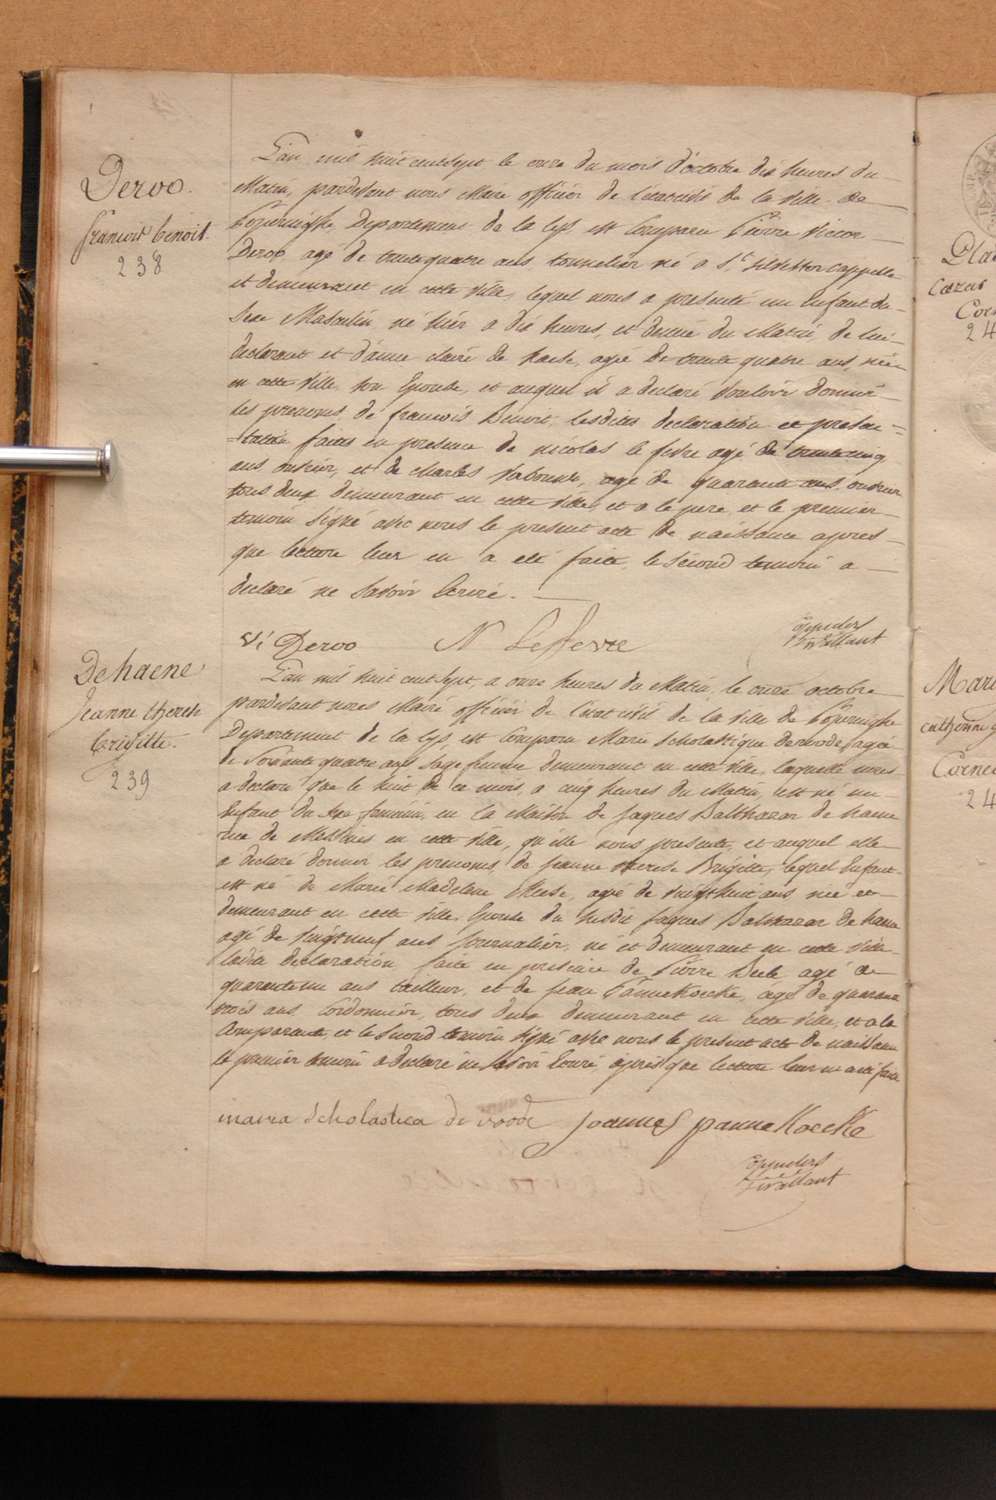 Dervo.
françois benoit.
238
L'an mil huit cent sept le onze du mois d'octobre dix heures du
Matin, pardevant nous Maire officier de l'état civil de la ville de
Poperinghe, Departement de la Lys est Comparu Pierre Victor
Dervo, agé de trente quatre ans tonnelier né à St.
et demeurant en cette ville, lequel nous a presenté un Enfant du
Sexe Masculin né hier a dix heures, et demie du Matin, de lui
declarant et d'anne claire de, agée de trente quatre ans, née
en cette ville son Epouse, et auquel il a declaré vouloir donner
les prenoms, de françois Benoit, lesdites declaration et presen-
-tation faites en presence de nicolas le febre agé de trente cinq
ans, et de charles, agé de quarante ans,
tous deux demeurant en cette ville, et a le pere, et le premier
temoin signé avec nous le present acte de naissance apres
que lecture leur en a été faite, le second temoin a
declaré ne savoir Ecrire.
Vi Dervo N Lefevre
Dehaene
Jeanne therese
brigitte.
239
L'an mil huit cent sept, a onze heures du Matin, le onze octobre
pardevant nous Maire officier de l'état civil de la ville de Poperinghe
Departement de la Lys est Comparu Marie Scholastique agée
de Soixante quatre ans Sage femme demeurant en cette ville, laquelle nous
a declaré que le huit de ce mois, a cinq heures du Matin, est né un
Enfant du Sexe feminin, en la Maison de Jaques Balthazar de haene
rue de en cette ville, qu'elle nous presente, et auquel elle
a declaré donner les prenoms, de jeanne therese Brigitte, lequel Enfant
est né de Marie Madeleine, agée de vingt huit ans née et
demeurant en cette ville Epouse du susdit Jaques Balthazar de haene
agé de vingt neuf ans Journalier, né et demeurant en cette ville
ladite declaration faite en presence de Pierre agé de
quarante un ans tailleur, et de jean Pannekoecke, agé de quarante
trois ans Cordonnier, tous deux demeurant en cette ville, et a la
Comparante, et le second temoin signé avec nous le present acte de naissance
le premier temoin a declaré ne savoir Ecrire, apres que lecture leur en a été faite
maria scholastica de voode Joannes pannekoecke
Mari
Corne
24